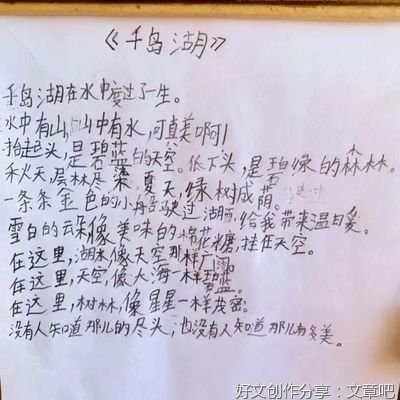 《千岛湖》
千岛湖在水中度过了一生。
水中有山,山中有水,可真美啊!
抬起头,是碧蓝的天空。低下头,是碧绿的森林。
秋天,层林尽染,夏天,绿树成荫。
一条条金色的小舟驶过湖面,给我带来温暖。
雪白的云朵像美味的棉花糖,挂在天空。
在这里,湖水像天空那样广阔。
在这里,天空,像大海一样碧蓝。
在这里,树林,像星星一样茂密。
没有人知道那儿的尽头,也没有人知道那儿有多美。
好文创作分享:文章吧